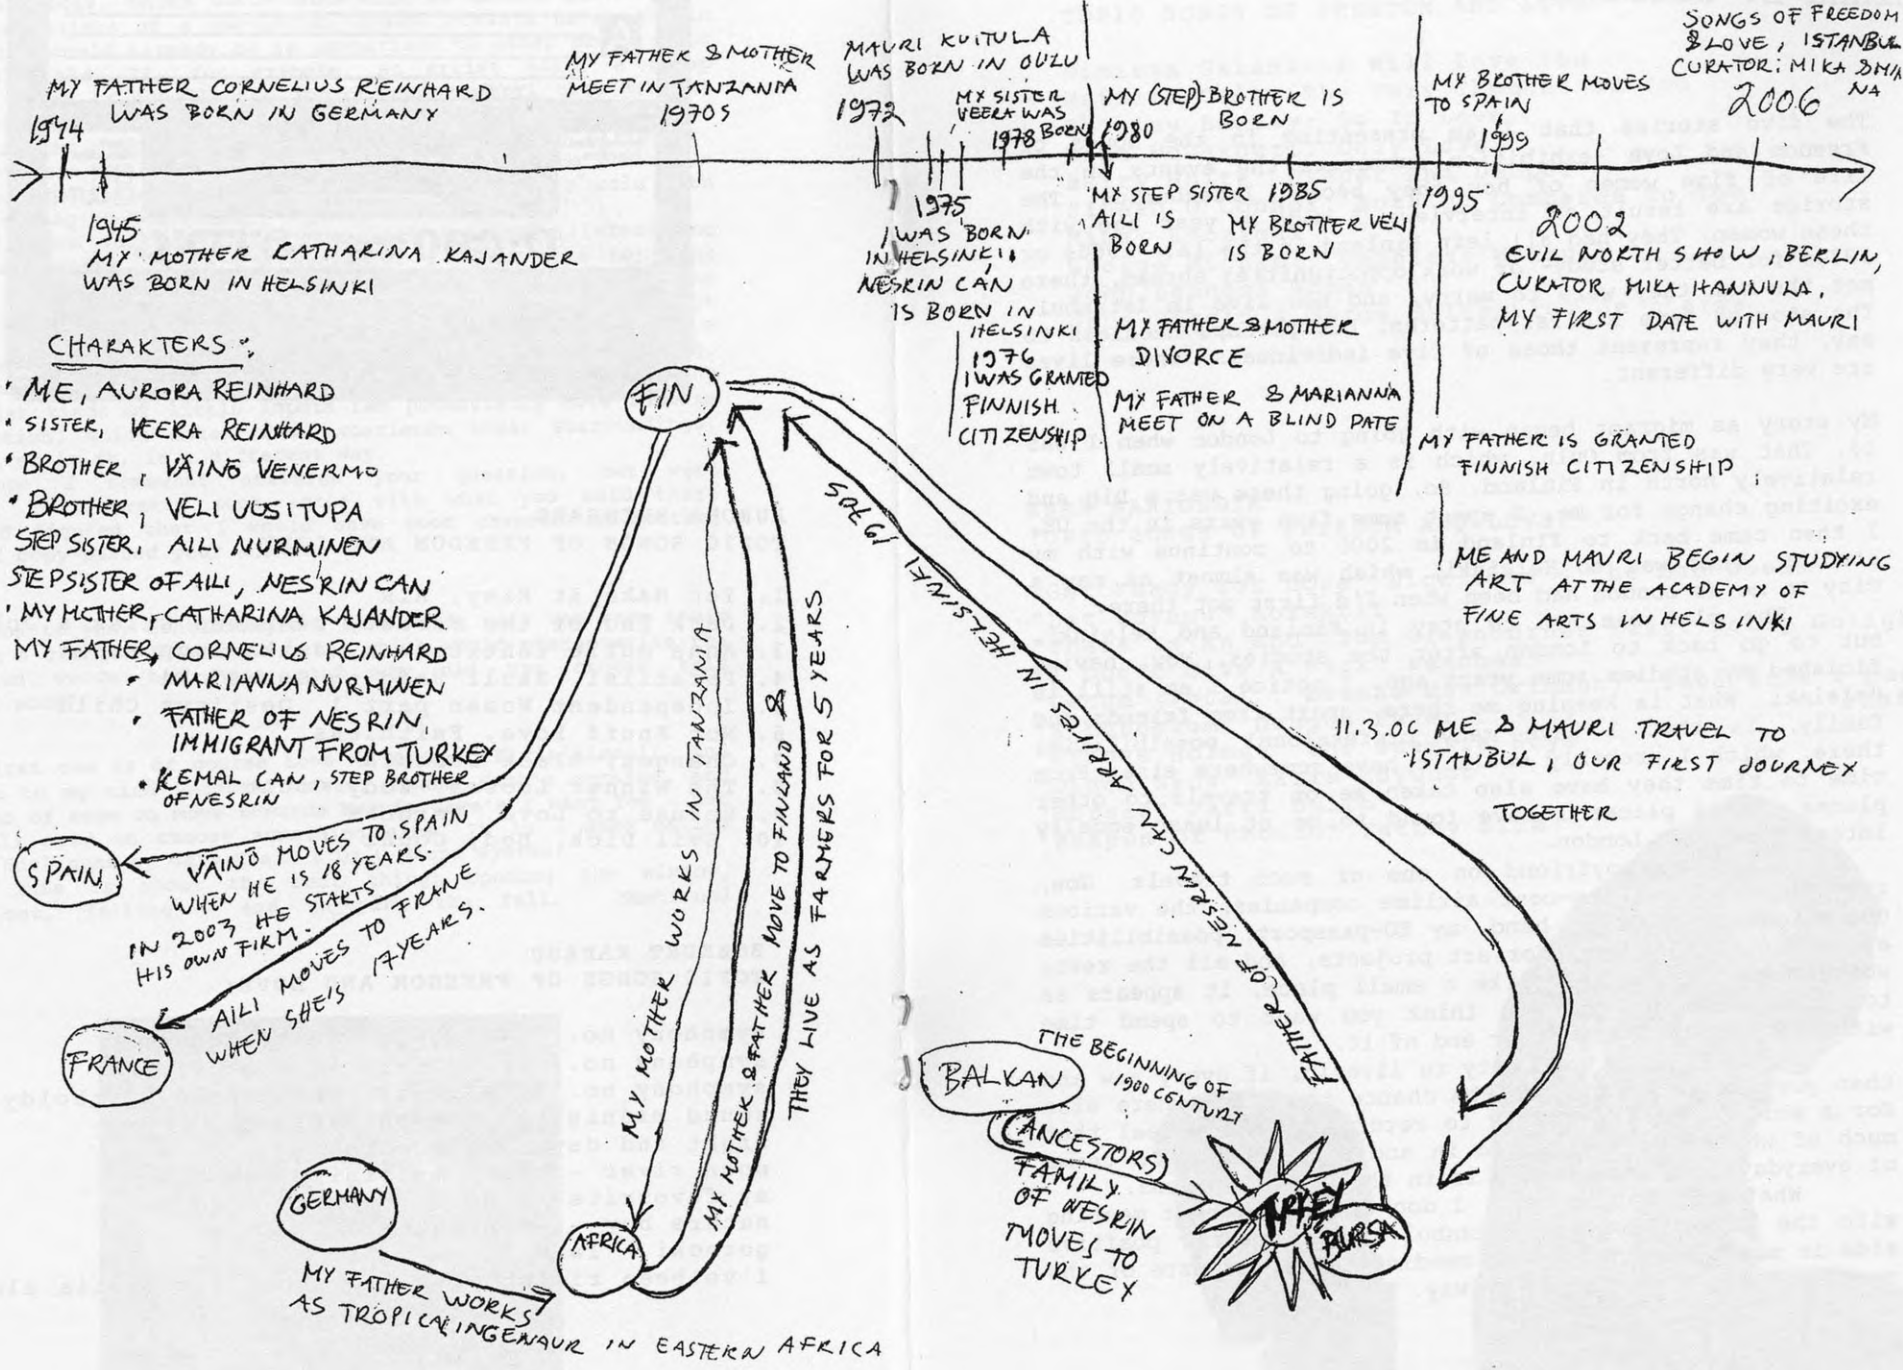 1944
MY FATHER CORNELIUS REINHARD
WAS BORN IN GERMANY
1945
MY MOTHER CATHARINA KAJANDER
WAS BORN IN HELSINKI
MY FATHER & MOTHER
MEET IN TANZANIA
1970S
MAURI KUITULA
WAS BORN IN OULU
1972
1975
I WAS BORN
IN HELSINKI.
NESRIN CAN
IS BORN IN
HELSINKI
1976
I WAS GRANTED
FINNISH
CITIZENSHIP
MY SISTER
VEERA WAS
1978 BORN
1980
MY (STEP)-BROTHER IS
BORN
MY STEP SISTER
AILI IS
BORN
1985
MY BROTHER VELI
IS BORN
MY FATHER & MOTHER
DIVORCE
MY FATHER & MARIANNA
MEET ON A BLIND DATE
1995
MY FATHER IS GRANTED
FINNISH CITIZENSHIP
ME AND MAURI BEGIN STUDYING
ART AT THE ACADEMY OF
FINE ARTS IN HELSINKI
MY BROTHER MOVES
TO SPAIN
1999
2002
EVIL NORTH SHOW, BERLIN,
CURATOR MIKA HANNULA.
MY FIRST DATE WITH MAURI
SONGS OF FREEDOM
& LOVE, ISTANBUL
CURATOR: MIKA & MINNA
2006
11.3.06 ME & MAURI TRAVEL TO
ISTANBUL, OUR FIRST JOURNEY
TOGETHER
CHARAKTERS:
• ME, AURORA REINHARD
• SISTER, VEERA REINHARD
• BROTHER, VÄINÖ VENERMO
• BROTHER, VELI UUSITUPA
STEP SISTER, AILI NURMINEN
STEPSISTER OF AILI, NESRIN CAN
• MY MOTHER, CATHARINA KAJANDER
MY FATHER, CORNELIUS REINHARD
• MARIANNA NURMINEN
• FATHER OF NESRIN
IMMIGRANT FROM TURKEY
• KEMAL CAN, STEP BROTHER
OF NESRIN
FIN
SPAIN
VÄINÖ MOVES TO SPAIN
WHEN HE IS 18 YEARS.
IN 2003 HE STARTS
HIS OWN FIRM.
FRANCE
AILI MOVES TO FRANE
WHEN SHE'S 17 YEARS.
GERMANY
MY FATHER WORKS
AS TROPICAL INGENAUR IN EASTERN AFRICA
AFRICA
MY MOTHER WORKS IN TANZANIA
MY MOTHER & FATHER MOVE TO FINLAND &
THEY LIVE AS FARMERS FOR 5 YEARS
FATHER OF NESRIN CAN ARRIVES IN HELSINKI 1970S
BALKAN
THE BEGINNING OF
1900 CENTURY
(ANCESTORS)
FAMILY
OF NESRIN
MOVES TO
TURKEY
TURKEY
BURSA